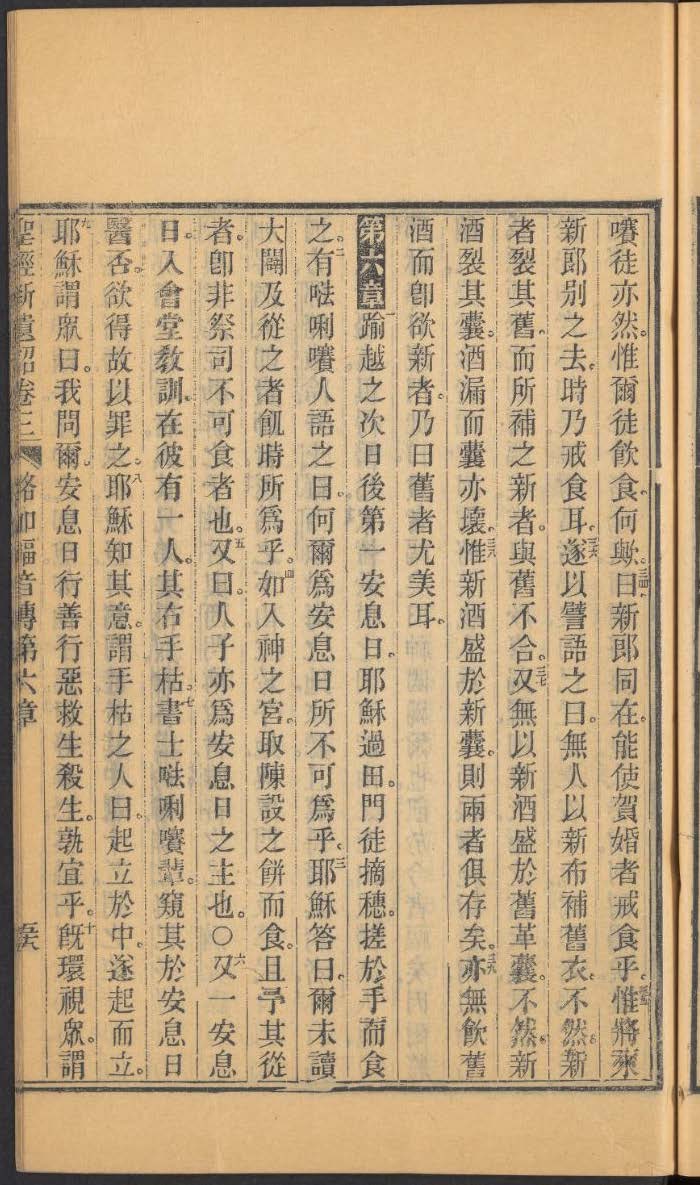 嚌徒亦然。惟爾徒飲食、何歟。三四曰、新郎同在。能使賀婚者戒食乎。三五惟將來
新郎別之去、時乃戒食耳。三六遂以譬語之曰。無人以新布補舊衣。不然、新
者裂其舊。而所補之新者。與舊不合。三七又無以新酒盛於舊革囊。不然、新
酒裂其囊。酒漏而囊亦壞。三八惟新酒盛於新囊。則兩者俱存矣。三九亦無飲舊
酒而卽欲新者。乃曰舊者尤美耳。
第六章 一踰越之次日後第一安息日。耶穌過田。門徒摘穗。搓於手而食
之。二有㕸唎嚌人語之曰、何爾爲安息日所不可爲乎。三耶穌答曰。爾未讀
大闢及從之者飢時所爲乎。四如入神之宮。取陳設之餅而食。且予其從
者。卽非祭司不可食者也。五又曰。人子亦爲安息日之主也。○六又一安息
日。入會堂敎訓。在彼有一人。其右手枯。七書士㕸唎嚌輩。窺其於安息日
醫否。欲得故以罪之。八耶穌知其意。謂手枯之人曰。起立於中。遂起而立。
九耶穌謂眾曰。我問爾。安息日行善行惡、救生殺生。孰宜乎。十旣環視眾。謂
聖經新遺詔卷三 路加福音傳第六章